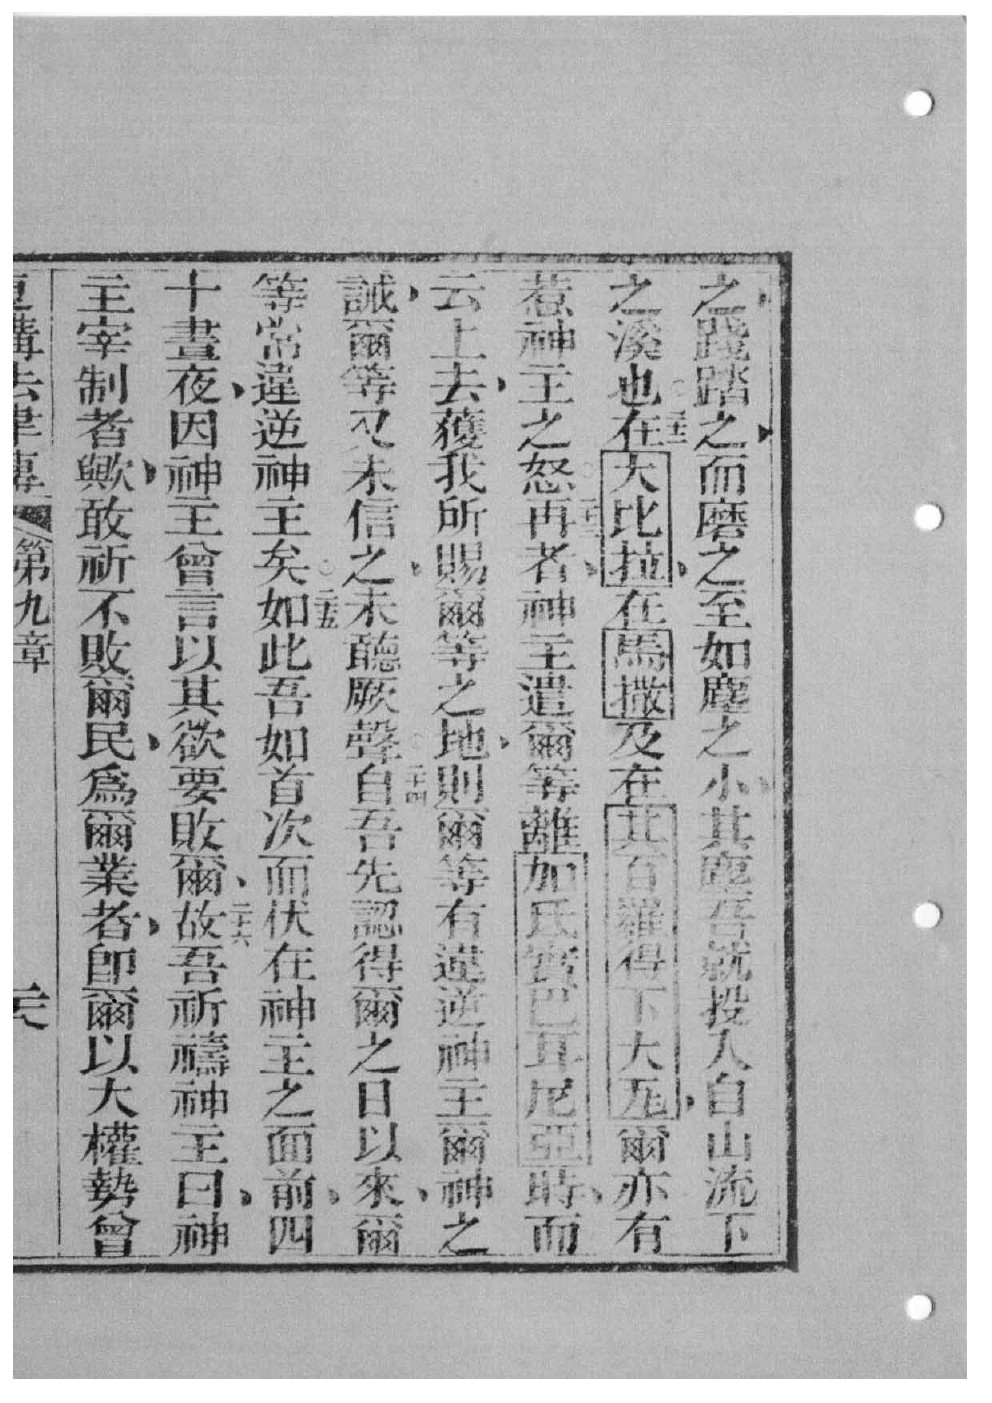 之踐踏之而磨之至如塵之小其塵吾就投入自山流下
之溪也○二十二在大比拉在馬撒及在其百羅得下大瓦爾亦有
惹神主之怒○二十三再者神主遣爾等離加氏實巴耳尼亞時而
云上去獲我所賜爾等之地則爾等有違逆神主爾神之
誡爾等又未信之未聽厥聲○二十四自吾先認得爾之日以來爾
等常違逆神主矣○二十五如此吾如首次而伏在神主之面前四
十晝夜因神主曾言以其欲要敗爾二十六故吾祈禱神主曰神
主宰制者歟敢祈不敗爾民為爾業者即爾以大權勢曾
復講法律傳 第九章